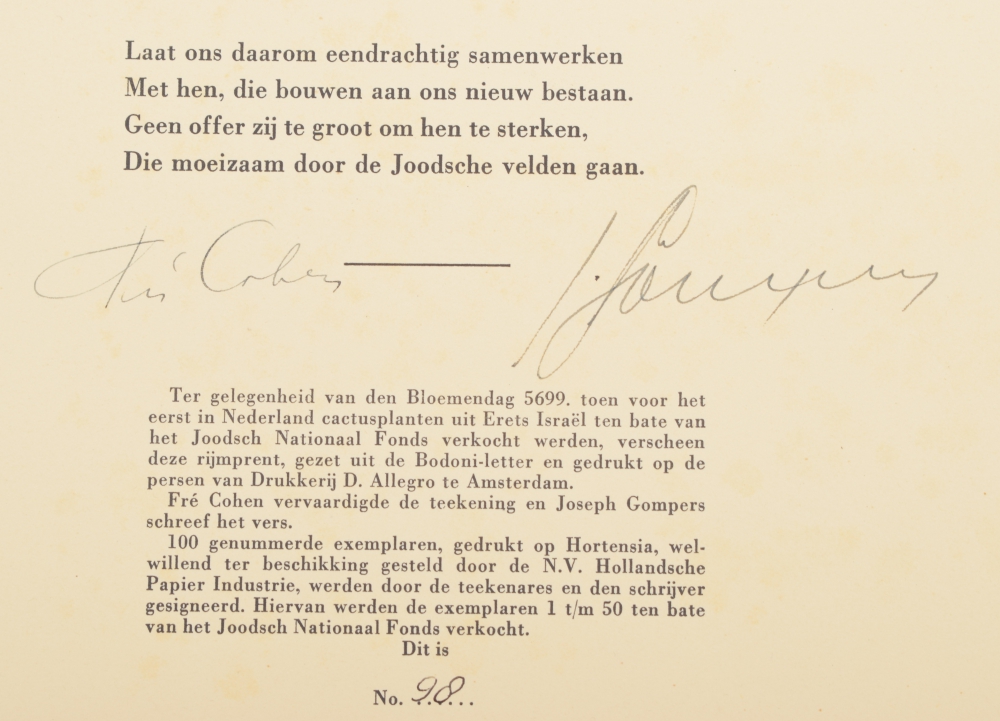 Laat ons daarom eendrachtig samenwerken
Met hen, die bouwen aan ons nieuw bestaan.
Geen offer zij te groot om hen te sterken,
Die moeizaam door de Joodsche velden gaan.
Fré Cohen
J. Gompers
Ter gelegenheid van den Bloemendag 5699. toen voor het
eerst in Nederland cactusplanten uit Erets Israël ten bate van
het Joodsch Nationaal Fonds verkocht werden, verscheen
deze rijmprent, gezet uit de Bodoni-letter en gedrukt op de
persen van Drukkerij D. Allegro te Amsterdam.
Fré Cohen vervaardigde de teekening en Joseph Gompers
schreef het vers.
100 genummerde exemplaren, gedrukt op Hortensia, wel-
willend ter beschikking gesteld door de N.V. Hollandsche
Papier Industrie, werden door de teekenares en den schrijver
gesigneerd. Hiervan werden de exemplaren 1 t/m 50 ten bate
van het Joodsch Nationaal Fonds verkocht.
Dit is
No. 98...